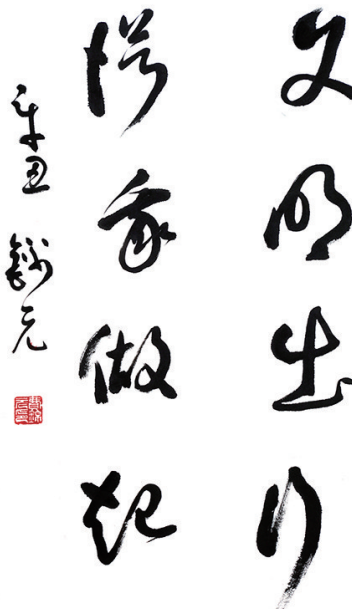 文明出行
從我做起
辛丑 錦元